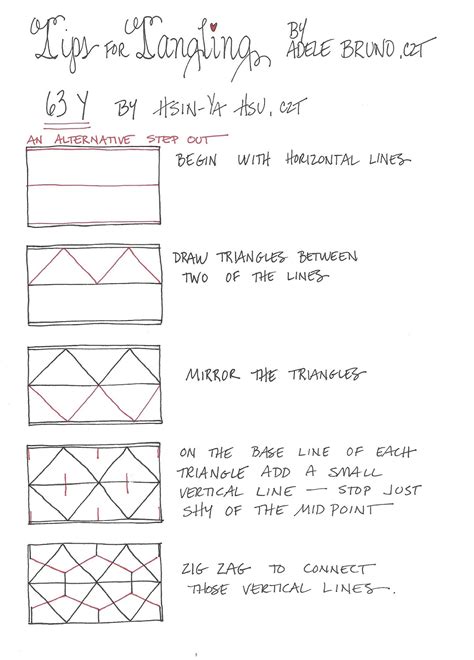 Tips for Tangling
BY
ADELE BRUNO, CZT
63 Y BY HSIN-YA HSU, CZT
AN ALTERNATIVE STEP OUT
BEGIN WITH HORIZONTAL LINES
DRAW TRIANGLES BETWEEN
TWO OF THE LINES
MIRROR THE TRIANGLES
ON THE BASE LINE OF EACH
TRIANGLE ADD A SMALL
VERTICAL LINE — STOP JUST
SHY OF THE MID POINT
ZIG ZAG TO CONNECT
THOSE VERTICAL LINES.